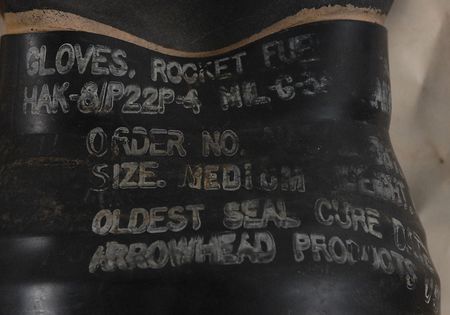 GLOVES, ROCKET FUE
HAK-8/P22P-4 MIL-G-
ORDER NO.
SIZE. MEDIUM
OLDEST SEAL CURE DATE
ARROWHEAD PRODUCTS